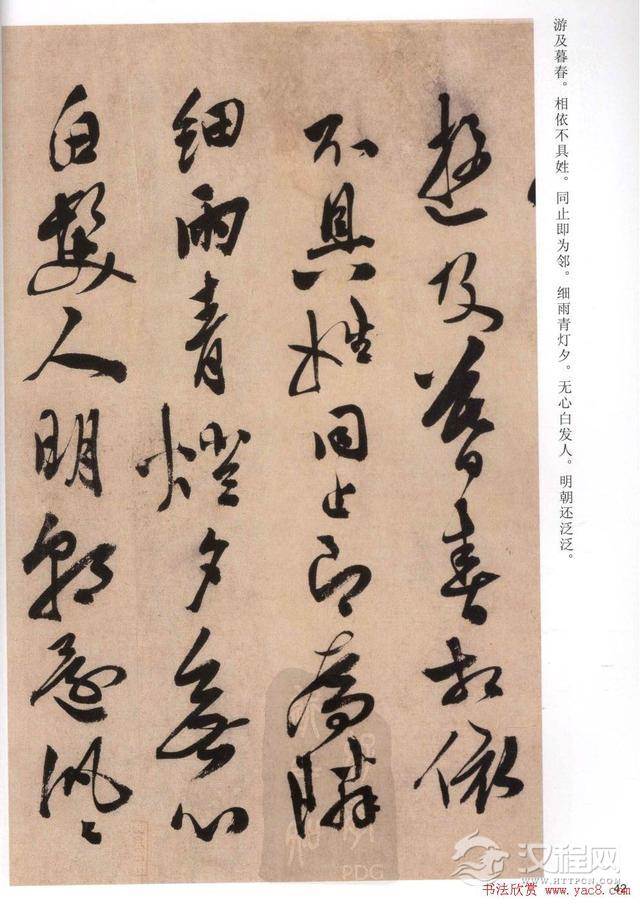 游及暮春。相依不具姓。同止即为邻。细雨青灯夕。无心白发人。明朝还泛泛。
遊及暮春相依
不具姓同止即為隣
细雨青燈夕無心
白髮人明朝還汎〻
汉程网
HTTPCN.COM
PDG
42
书法欣赏 www.yac8.com